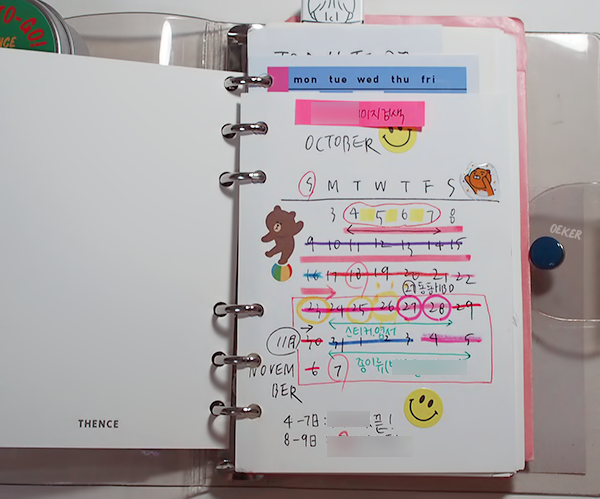 TO-GO!
mon tue wed thu fri
이지검색
OCTOBER
S M T W T F S
3 4 5 6 7 8
9 10 11 12 13 14 15
16 17 18 19 20 21 22
23 24 25 26 27 28 29
스티커
11月 30 31 1 2 3 4 5
NOVEM
6 7 종이류
BER
4-7日: 끝!
8-9日:
THENCE
OEKER